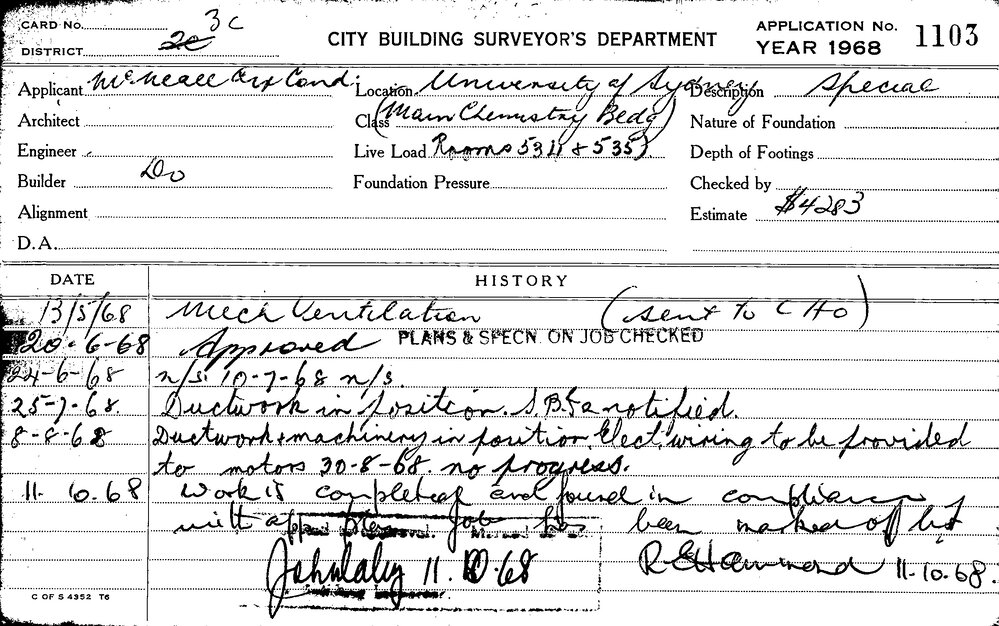 CARD No.
3c
DISTRICT 2c
CITY BUILDING SURVEYOR'S DEPARTMENT
APPLICATION No. 1103
YEAR 1968
Applicant McNeall Air Cond:
Location University of Sydney
Description Special
Architect
Class (Main Chemistry Bldg
Nature of Foundation
Engineer
Live Load Rooms 531 & 535).
Depth of Footings
Builder Do
Foundation Pressure
Checked by
Alignment
Estimate $4283
D.A.
DATE HISTORY
13/5/68 Mech Ventilation (sent to CHO)
20-6-68 Approved PLANS & SPECN. ON JOB CHECKED
24-6-68 n/s. 10-7-68 n/s.
25-7-68. Ductwork in position. notified.
8-8-68 Ductwork & machinery in position Elect. wiring to be provided
to motors 30-8-68. no progress.
11. 10. 68 Work is completed and found in compliance
with app Job has been marked off list
11.10.68 R E Hammond 11.10.68.
C OF S 4352 T6